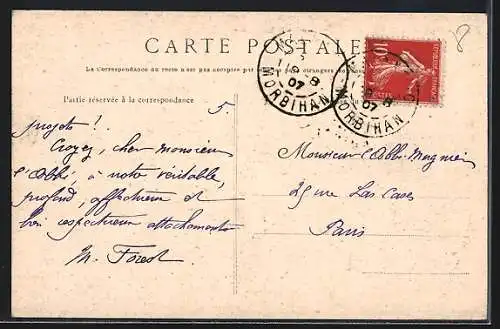 8
CARTE POSTALE
La Correspondance au recto n'est pas acceptée par
Partie réservée à la correspondance
5
MORBIHAN
07
MORBIHAN
07
10
projets !
Croyez, cher monsieur
l'abbé, à notre véritable,
profond, affectueux et
bien respectueux attachement
M. Forest
Monsieur l'Abbé
25 rue Las Cases
Paris